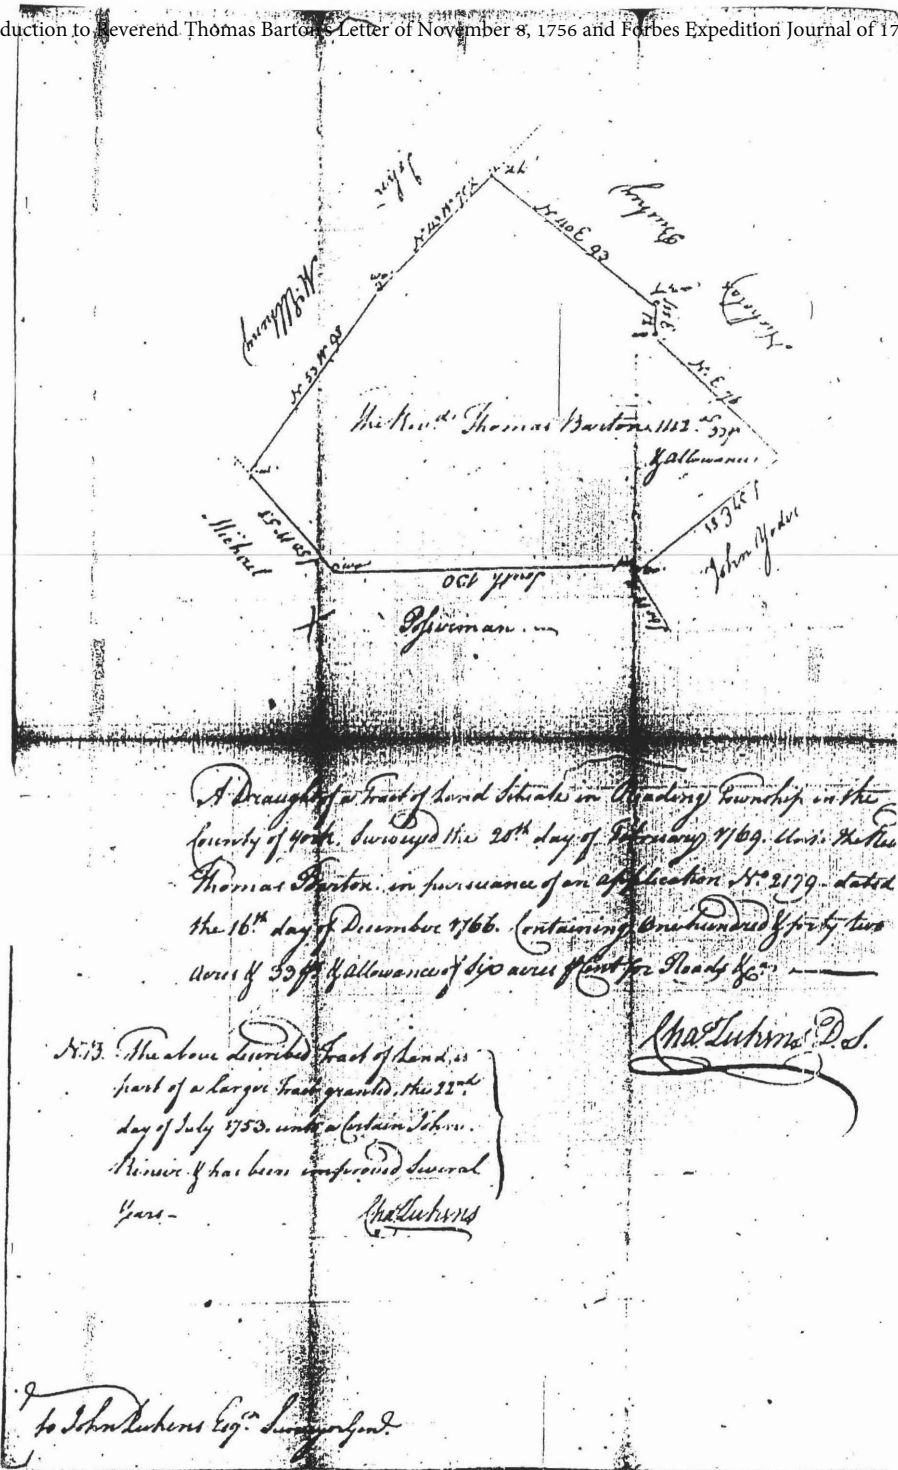 duction to Reverend Thomas Barton's Letter of November 8, 1756 and Forbes Expedition Journal of 17
John
N 40 E 93
McIlhenny
Nicholas
N 33 W 98
The Revd. Thomas Barton
& Allowance
Michael
S 50 W 53
John Yoder
South 150
A Draught of a Tract of Land Situate in Reading Township in the
County of York. Surveyed the 20th day of February 1769. Unto the Rev
Thomas Barton. in pursuance of an application No. 2179 dated
the 16th day of December 1766. Containing One hundred & forty two
acres & 33 & Allowance of Six acres Cent for Roads &ca.
Chas Lukens D.S.
N.B. The above described Tract of Land is
part of a larger Tract granted the 22nd
day of July 1753. unto a Certain John
& has been improved Several
Years -
Chas Lukens
to John Lukens Esqr. Surveyor Genl.